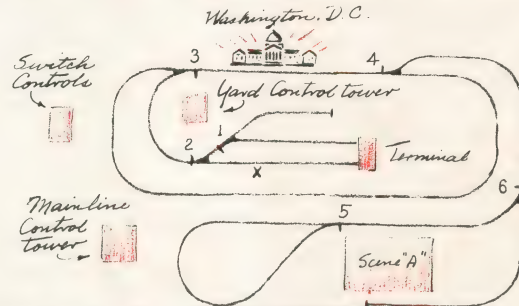 Washington, D.C.
Switch
Controls
3
4
Yard Control tower
1
2
Terminal
X
6
Mainline
Control
tower
5
Scene "A"